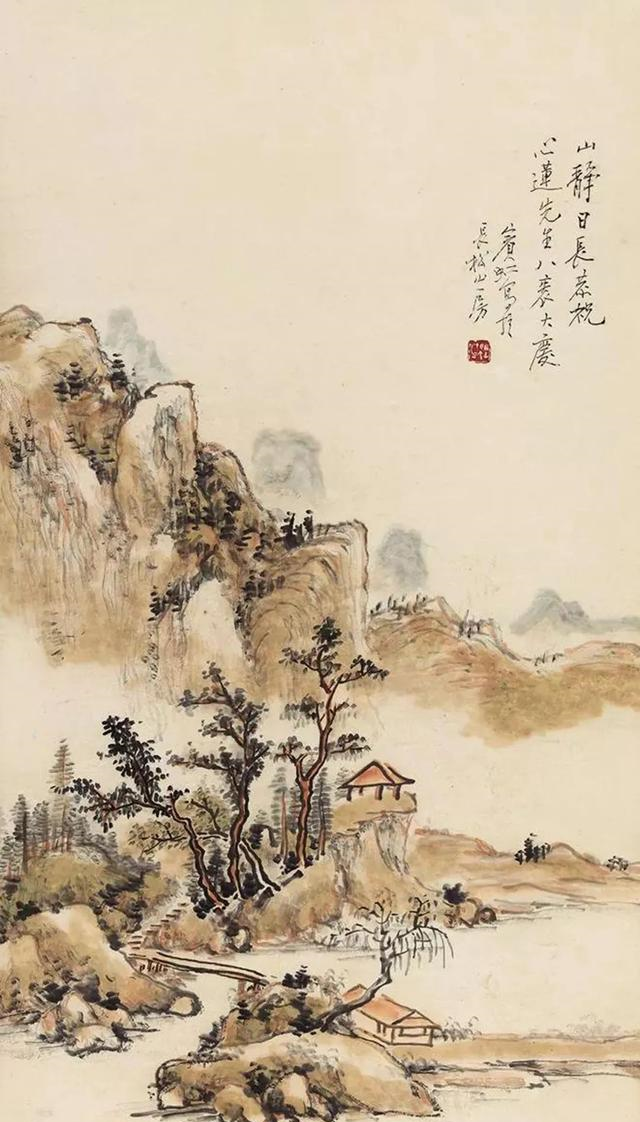 山靜日長恭祝
心蓮先生八袠大慶
賓虹寫於
長松山房